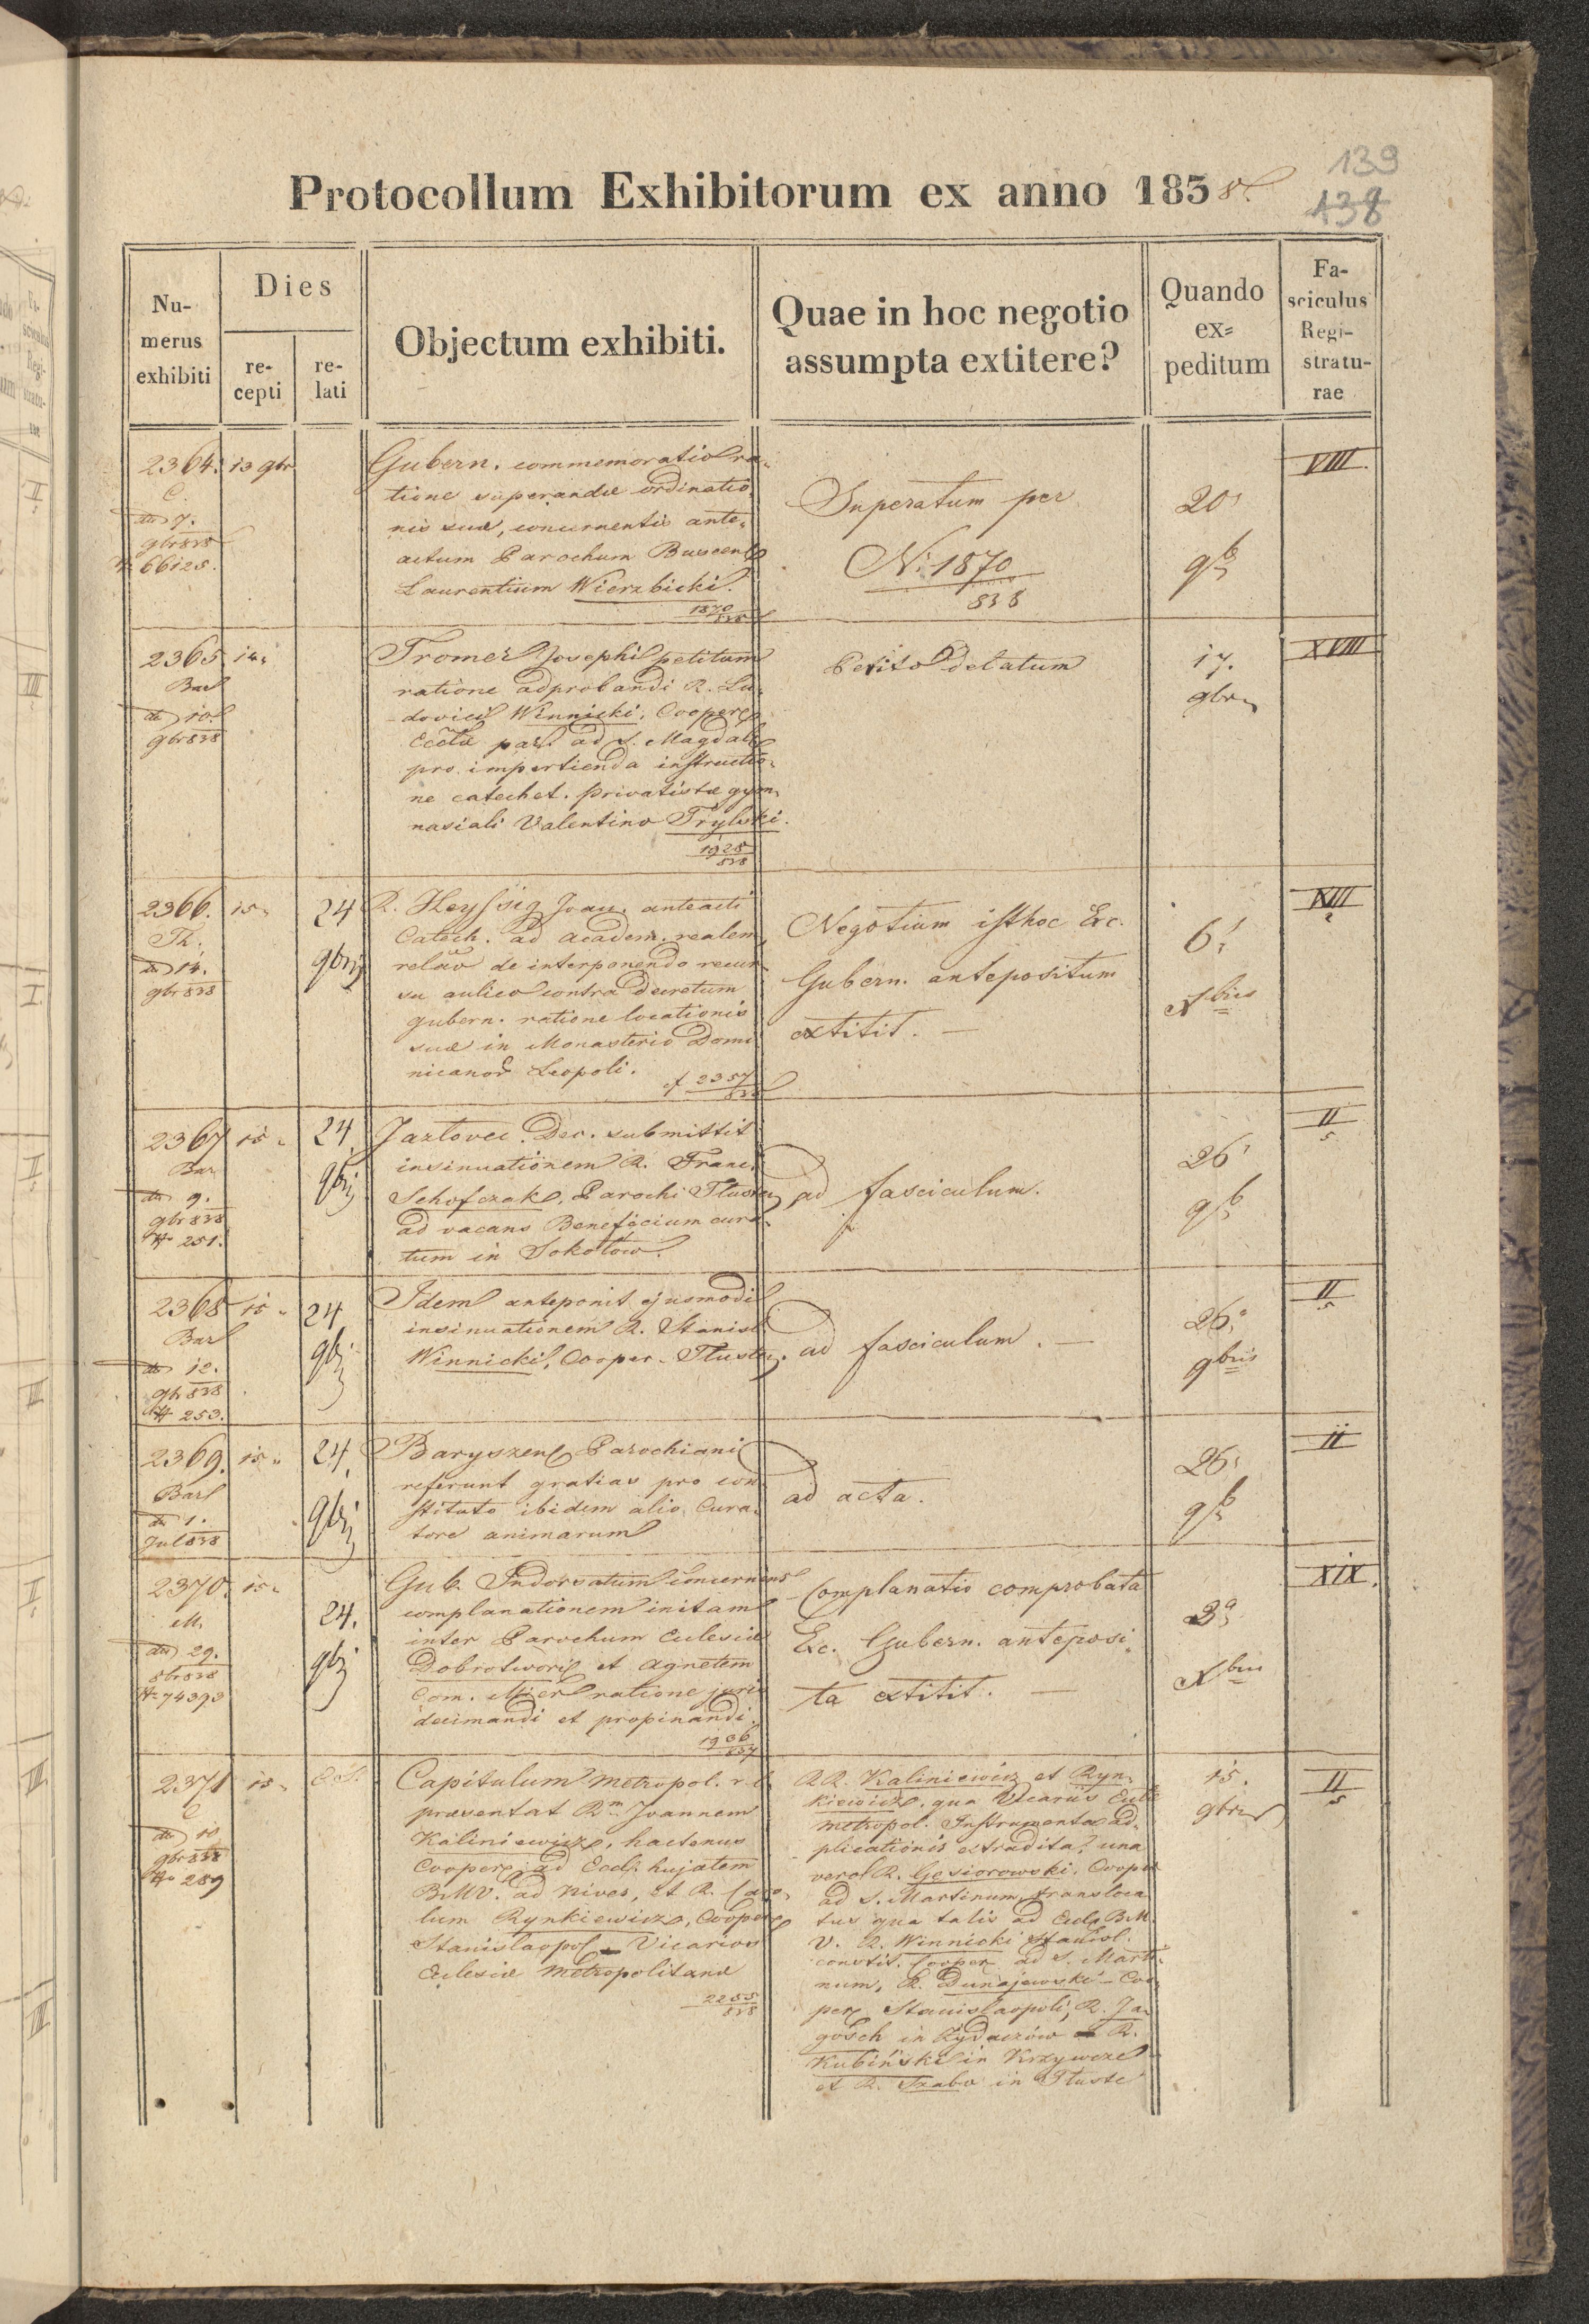 139
138
Protocollum Exhibitorum ex anno 1838.
Numerus exhibiti
Dies
recepti
relati
Objectum exhibiti.
Quae in hoc negotio assumpta extitere?
Quando ex=peditum
Fasciculus Registraturae
2364. 13 9br
C.
7.
9br 838
66125.
Gubern. commemoratio ra-
tione superandae ordinatio-
nis suae, concernentis ante-
actum Parochum Buscen
Laurentium Wierzbicki.
1870
838
Superatum per
N: 1870
838
20
9b
VIII.
2365 14.
Bar
10.
9br 838
Tromer Josephi petitum
ratione adprobandi R. Lu-
dovici Winnicki, Cooper
Eccłae par. ad S. Magdal
pro impertienda instructio-
ne catechet. privatistae gym-
nasiali Valentino Trylski.
1928
838
Petito delatum
17.
9br
XVIII
2366. 15. 24
Th. 9bris
14.
9br 838
R. Heyssig Joan. anteacti
Catech. ad academ. realem,
relatio de interponendo recur-
su aulico contra decretum
gubern. ratione locationis
suae in Monasterio Domi-
nicanor Leopoli.
cf 2357
838
Negotium isthoc Exc.
Gubern. antepositum
extitit. —
6
Xbris
XIII
2
2367 15. 24.
Bar 9bris
9.
9br 838
251.
Jazlovec. Dec. submittit
insinuationem R. Franc.
Schofczak, Parochi Tłusten
ad vacans Beneficium cura-
tum in Sokołow.
ad fasciculum.
26
9b
II
5
2368 15. 24
Bar 9bris
12.
9br 838
253.
Idem anteponit ejusmodi
insinuationem R. Stanisl.
Winnicki, Cooper. Tłusten.
ad fasciculum. —
26.
9bris
II
5
2369. 15. 24.
Bar 9bris
1.
Jul 838
Baryszen Parochiani
referunt gratias pro con-
stituto ibidem alio Cura-
tore animarum
ad acta.
26.
9b
II
2370. 15. 24.
M. 9bris
29.
8br 838
74393
Gub. Indorsatum concernens
complanationem initam
inter Parochum Ecclesiae
Dobrotwor et Agnetem
Com. Mier ratione juris
decimandi et propinandi.
1936
837
Complanatio comprobata
Exc. Gubern. anteposi-
ta extitit. —
3
Xbris
XIX.
2371 15. E.S.
C
10
9br 838
289
Capitulum metropol. r. l.
praesentat Rm Joannem
Kaliniewicz, hactenus
Cooper ad Eccl. hujatem
BMV. ad nives, et R. Caro-
lum Rynkiewicz, Cooper
Stanislaopol — Vicarios
Ecclesiae metropolitanae
2255
838
RR. Kaliniewicz et Ryn-
kiewicz, qua Vicariis Eccl
metropol. Instrumenta ad-
plicationis extradita, una
vero R. Gęsiorowski, Cooper
ad S. Martinum transloca-
tus qua talis ad Eccl BM
V. R. Winnicki Stanisl.
constit. Cooper ad S. Marti-
num, R. Dunajewski – Coo-
per Stanislaopoli, R. Ja-
gosch in Żydaczów R.
Kubiński in Krzywcze
et R. Szabo in Tłuste
15.
9bris
II
5